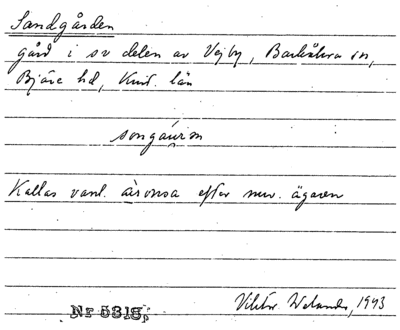 Sandgården
gård i sv delen av Vejby, Barkåkra sn,
Bjäre hd, Krist. län
songáurın
Kallas vanl. ärvnsa efter nuv. ägaren
Nr 5318;
Viktor Welander, 1943